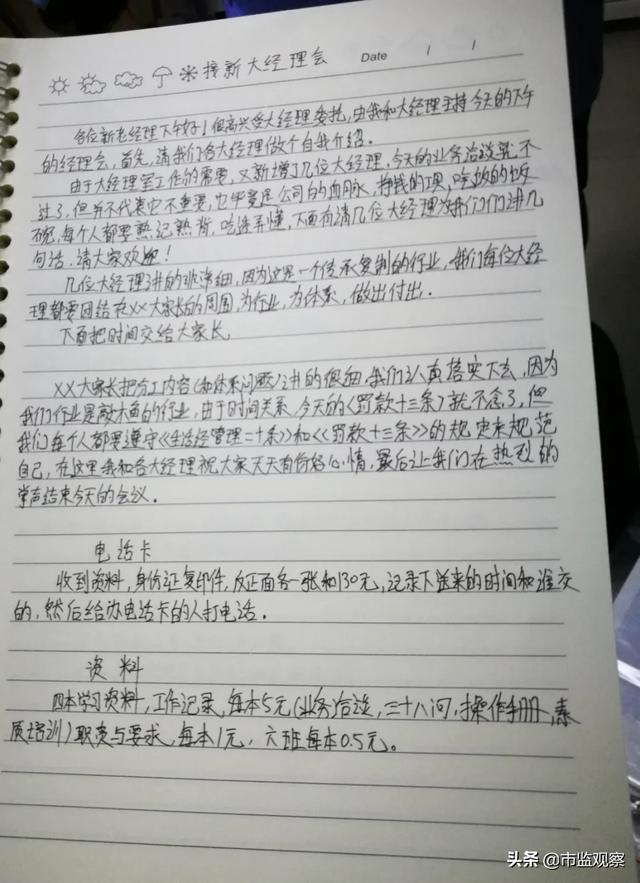 接新大经理会 Date / /
各位新老经理下午好！很高兴受大经理委托，由我和大经理主持今天的下午
的经理会，首先，请我们各大经理做个自我介绍．
由于大经理室工作的需要，又新增了几位大经理，今天的业务洽谈就不
过了，但并不代表它不重要，它毕竟是公司的血脉，挣钱的项，吃饭的饭
碗，每个人都要熟记熟背，吃透弄懂，下面有请几位大经理为我们们讲几
句话，请大家欢迎！
几位大经理讲的非常细，因为这是一个传承复制的行业，我们每位大经
理都要团结在XX大家长的周围，为行业，为体系，做出付出．
下面把时间交给大家长
XX大家长把分工内容(和体系问题)讲的很细，我们认真落实下去，因为
我们行业是敲木鱼的行业，由于时间关系，今天的《罚款十三条》就不念了，但
我们每个人都要遵守《生活经管理二十条》和《罚款十三条》的规定来规范
自己，在这里我和各大经理祝大家天天有份好心情，最后让我们在热烈的
掌声结束今天的会议．
电话卡
收到资料，身份证复印件，反正面各一张和130元，记录下送来的时间和谁交
的，然后给办电话卡的人打电话．
资料
四本学习资料，工作记录，每本5元(业务洽谈，三十八问，操作手册，素
质培训)职责与要求，每本1元，六班每本0.5元。
头条 @市监观察